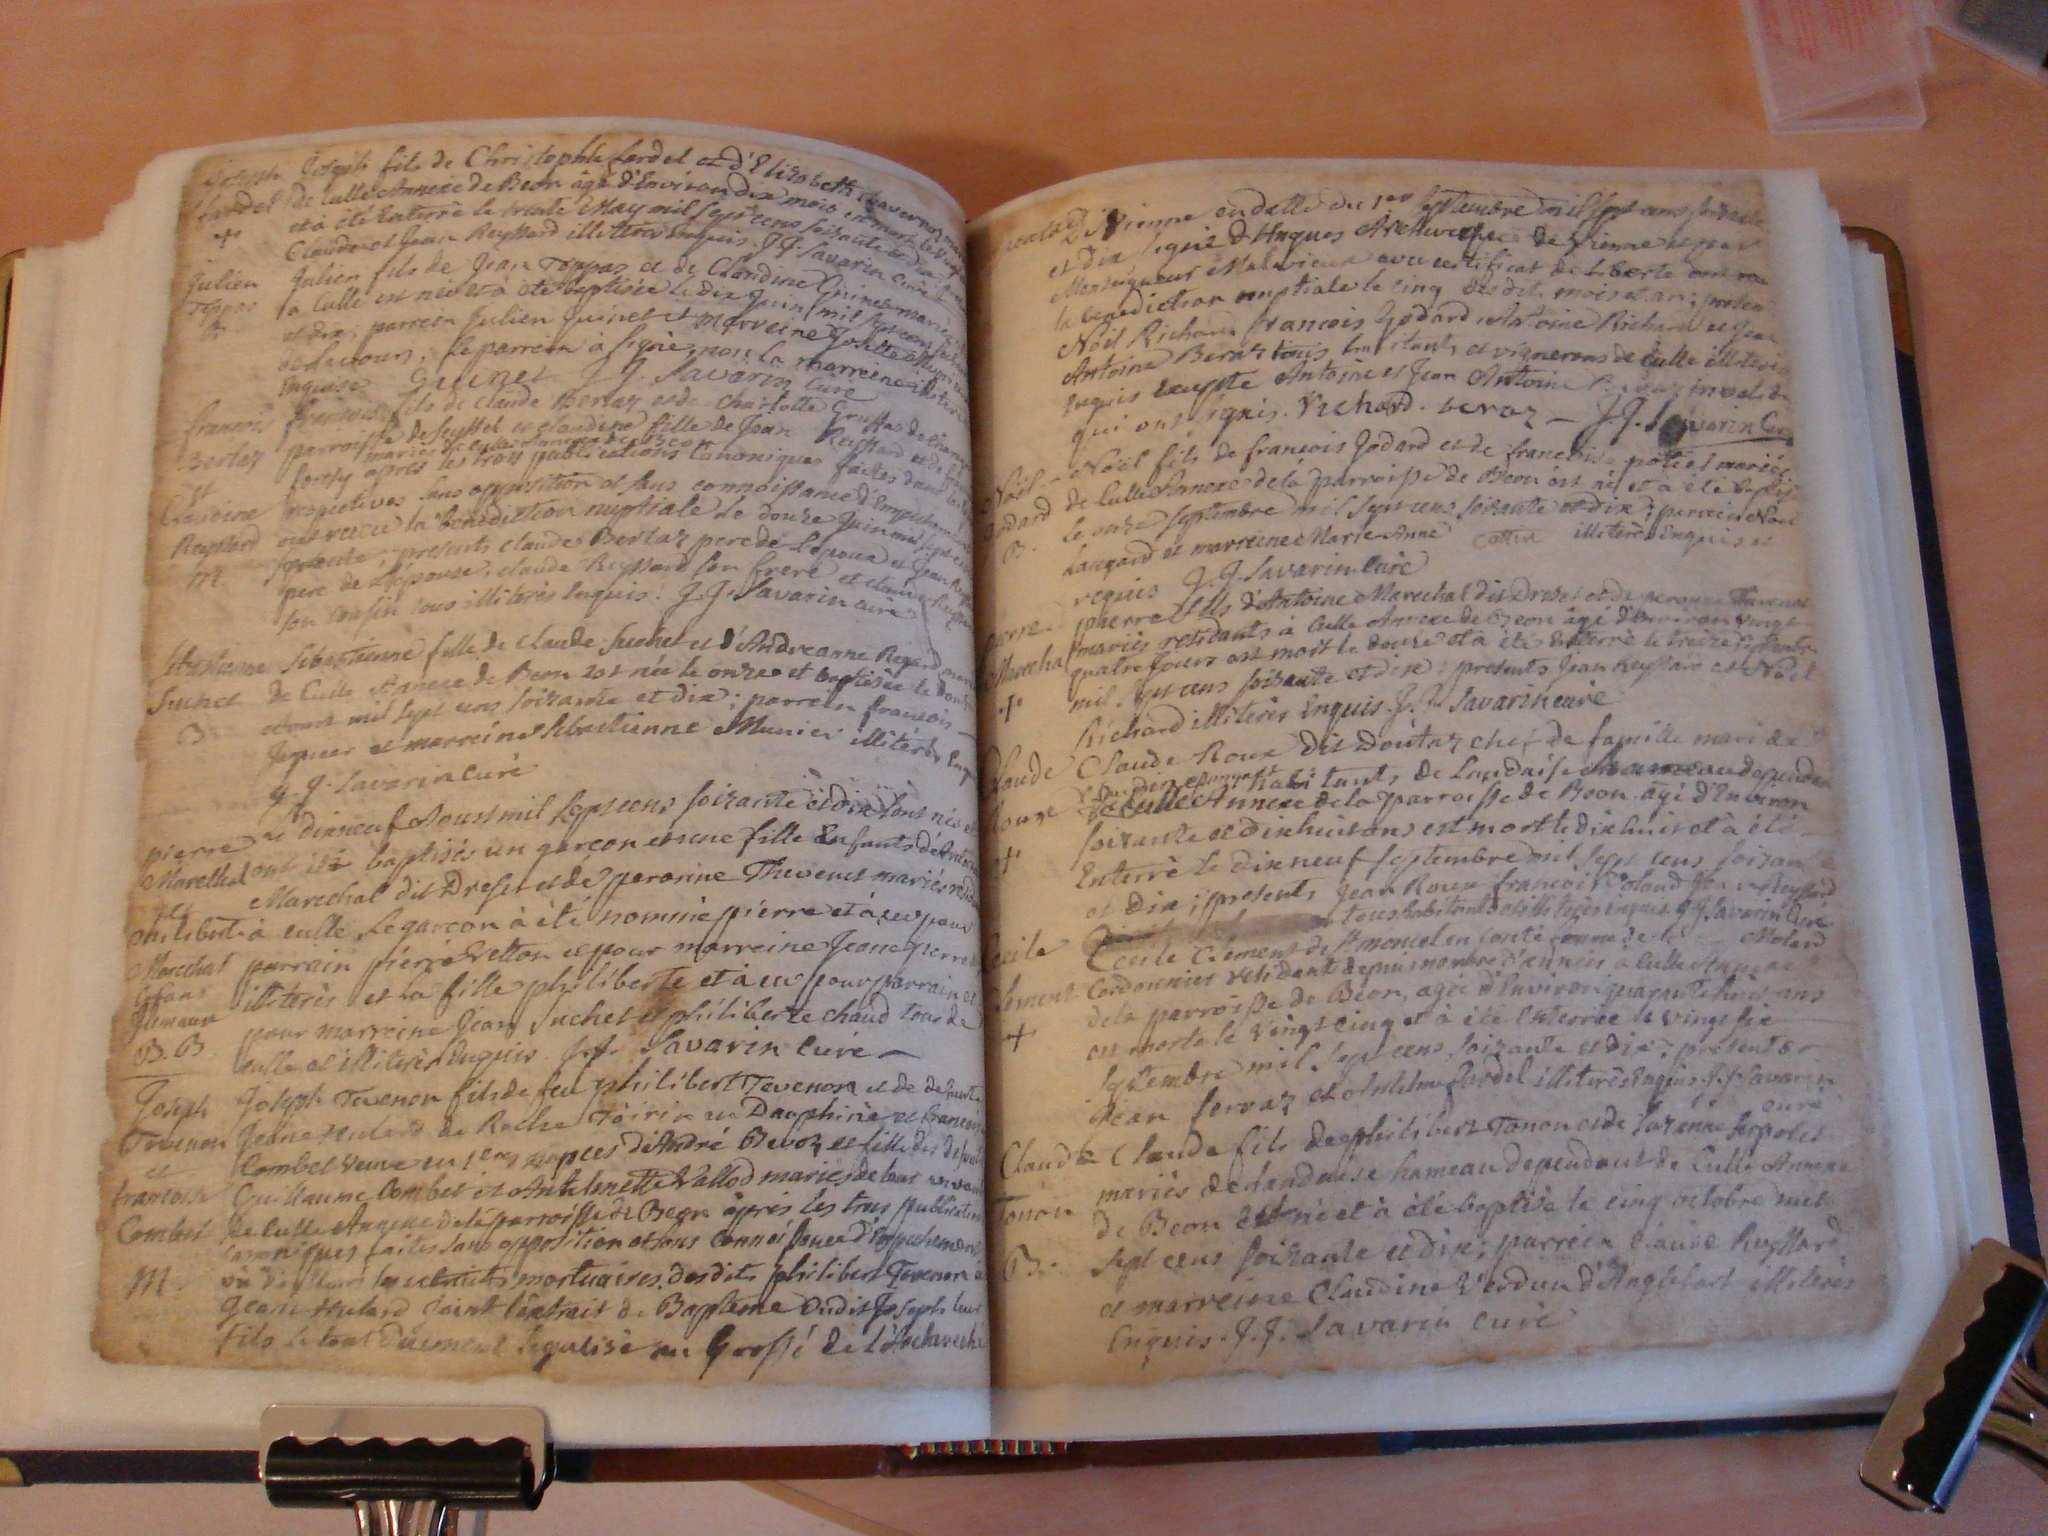 Joseph Joseph fils de Christophle fardel et d'Elizabeth
fardel de Culle Annexe de Beon âgé d'Environ dix mois
+ et à été Enterré le trente May mil sept cens soixante
Claude et Jean Reyssard illiterés Enquis. J.J. Savarin Curé
Julien Julien fils de Jean Toppaz et de Claudine Guinet mariés
Toppaz a Culle est né et à été baptisé le dix Juin mil sept cens
B. et dix; parrein Julien Guinet et Marreine Josette
Le parrein à signé, non la marreine
Enquise Guinet J.J. Savarin Curé
francois francois fils de Claude Bertaz et de Charlotte
Bertaz parroisse de Seyssel et Claudine fille de Jean Reyssard et de
mariés de Culle Annexe de Beon
et apres les trois publications Canoniques faites dans
Claudine respectives sans opposition et sans connoissance d'Empechement
Reyssard ont recu la bénédiction nuptiale le douze Juin mil sept cens
M. presents Claude Bertaz pere de l'epoux et Jean
pere de L'Epouse, Claude Reyssard son frere et
son cousin tous illiterés Enquis. J.J. Savarin curé
Sebastienne fille de Claude Suchet et d'Andreanne
Suchet de Culle Annexe de Beon est née le onze et baptisée le douze
B. Aoust mil sept cens soixante et dix; parrein francois
et marreine Sebastienne Munier illiterés
J.J. Savarin Curé
pierre Le dixneuf Aoust mil sept cens soixante et dix sont nés et
Marechal ont été baptisés un garcon et une fille Enfants d'Antoine
et Marechal dit Dreset et de perorine Thevenet mariés
philiberte à Culle, Le garcon à été nommé pierre et à eu pour
Marechal parrain pierre Velton et pour marreine Jeane pierre
Efans illiterés et la fille philiberte et à eu pour parrain et
Jumeaux pour marreine Jean Suchet et philiberte Chaud tous de
B. B. Culle et illiterés Enquis. J.J. Savarin Curé
Joseph Joseph Tevenon fils de feu philibert Tevenon et de defunte
Tevenon Jeane Mulard de Roche Toirin en Dauphiné et francoise
et Combet veuve en 1eres nopces d'André Bevoz et fille des defunts
francoise Guillaume Combet et Anthelmette Vallod mariés de leur vivant
Combet de Culle Annexe de la parroisse de Beon apres les trois publications
canoniques faites sans opposition et sans connoissance d'Empechement
M. vu d'ailleurs les extraits mortuaires desdits philibert Tevenon et
Jeane Mulard Joint l'extrait de Baptême dudit Joseph leur
fils le tout Duement legalisé au Greffe de L'Archeveché
de Vienne en datte du 1er septembre mil sept cens soixante
et dix signé D'Hugues Archeveque de Vienne et par
Monseigneur avec certificat de Liberté ont recu
la benediction nuptiale le cinq desdits mois et an; presens
Noël Richard francois Godard, Antoine Richard et Jean
Antoine Beroz tous habitants et vignerons de Culle illiterés
Enquis Excepté Antoine et Jean Antoine
qui ont signés. Richard. beroz — J.J. Savarin Curé
Noël Noël fils de francois Godard et de francoise mariés
Godard de Culle Annexe de la parroisse de Beon est né et à été baptisé
B. le onze septembre mil sept cens soixante et dix; parrein Noël
Laugard et marreine Marie Anne Cottin illiterés Enquis et
requis J.J. Savarin Curé
pierre pierre fils d'Antoine Marechal dit Dreset et de perorine Tevenet
Marechal mariés residants à Culle Annexe de Beon âgé d'Environ vingt
quatre Jours est mort le douze et à été Enterré le treize septembre
+ mil sept cens soixante et dix: presents Jean Reyssard et Noël
Richard illiterés Enquis. J.J. Savarin curé
Claude Claude Roux dit Doutaz chef de famille mari de
Roux habitants de Landaise hameau dependant
de Culle Annexe de la parroisse de Beon âgé d'Environ
+ soixante et dixhuit ans est mort le dixhuit et à été
Enterré le dixneuf septembre mil sept cens soixante
et dix; presents Jean Roux francois Jean Reyssard
tous habitants et illiterés Enquis J.J. Savarin Curé
Cecile Cecile Clement de St moncel en Conté femme de Molard
Clement Cordonnier residant depuis nombre d'années à Culle Annexe
de la parroisse de Béon, agée d'Environ quarante huit ans
+ est morte le vingt cinq et à été Enterrée le vingt six
septembre mil sept cens soixante et dix; presents
Jean servaz et Anthelme fardel illiterés Enquis J.J. Savarin
curé
Claude Claude fils de philibert Tonon et de
Tonon mariés de Landaise hameau dependant de Culle Annexe
de Beon Est né et à été baptisé le cinq octobre mil
B. sept cens soixante et dix; parrein Claude Reyssard
et marreine Claudine Verdun d'Anglefort illiterés
Enquis. J.J. Savarin Curé